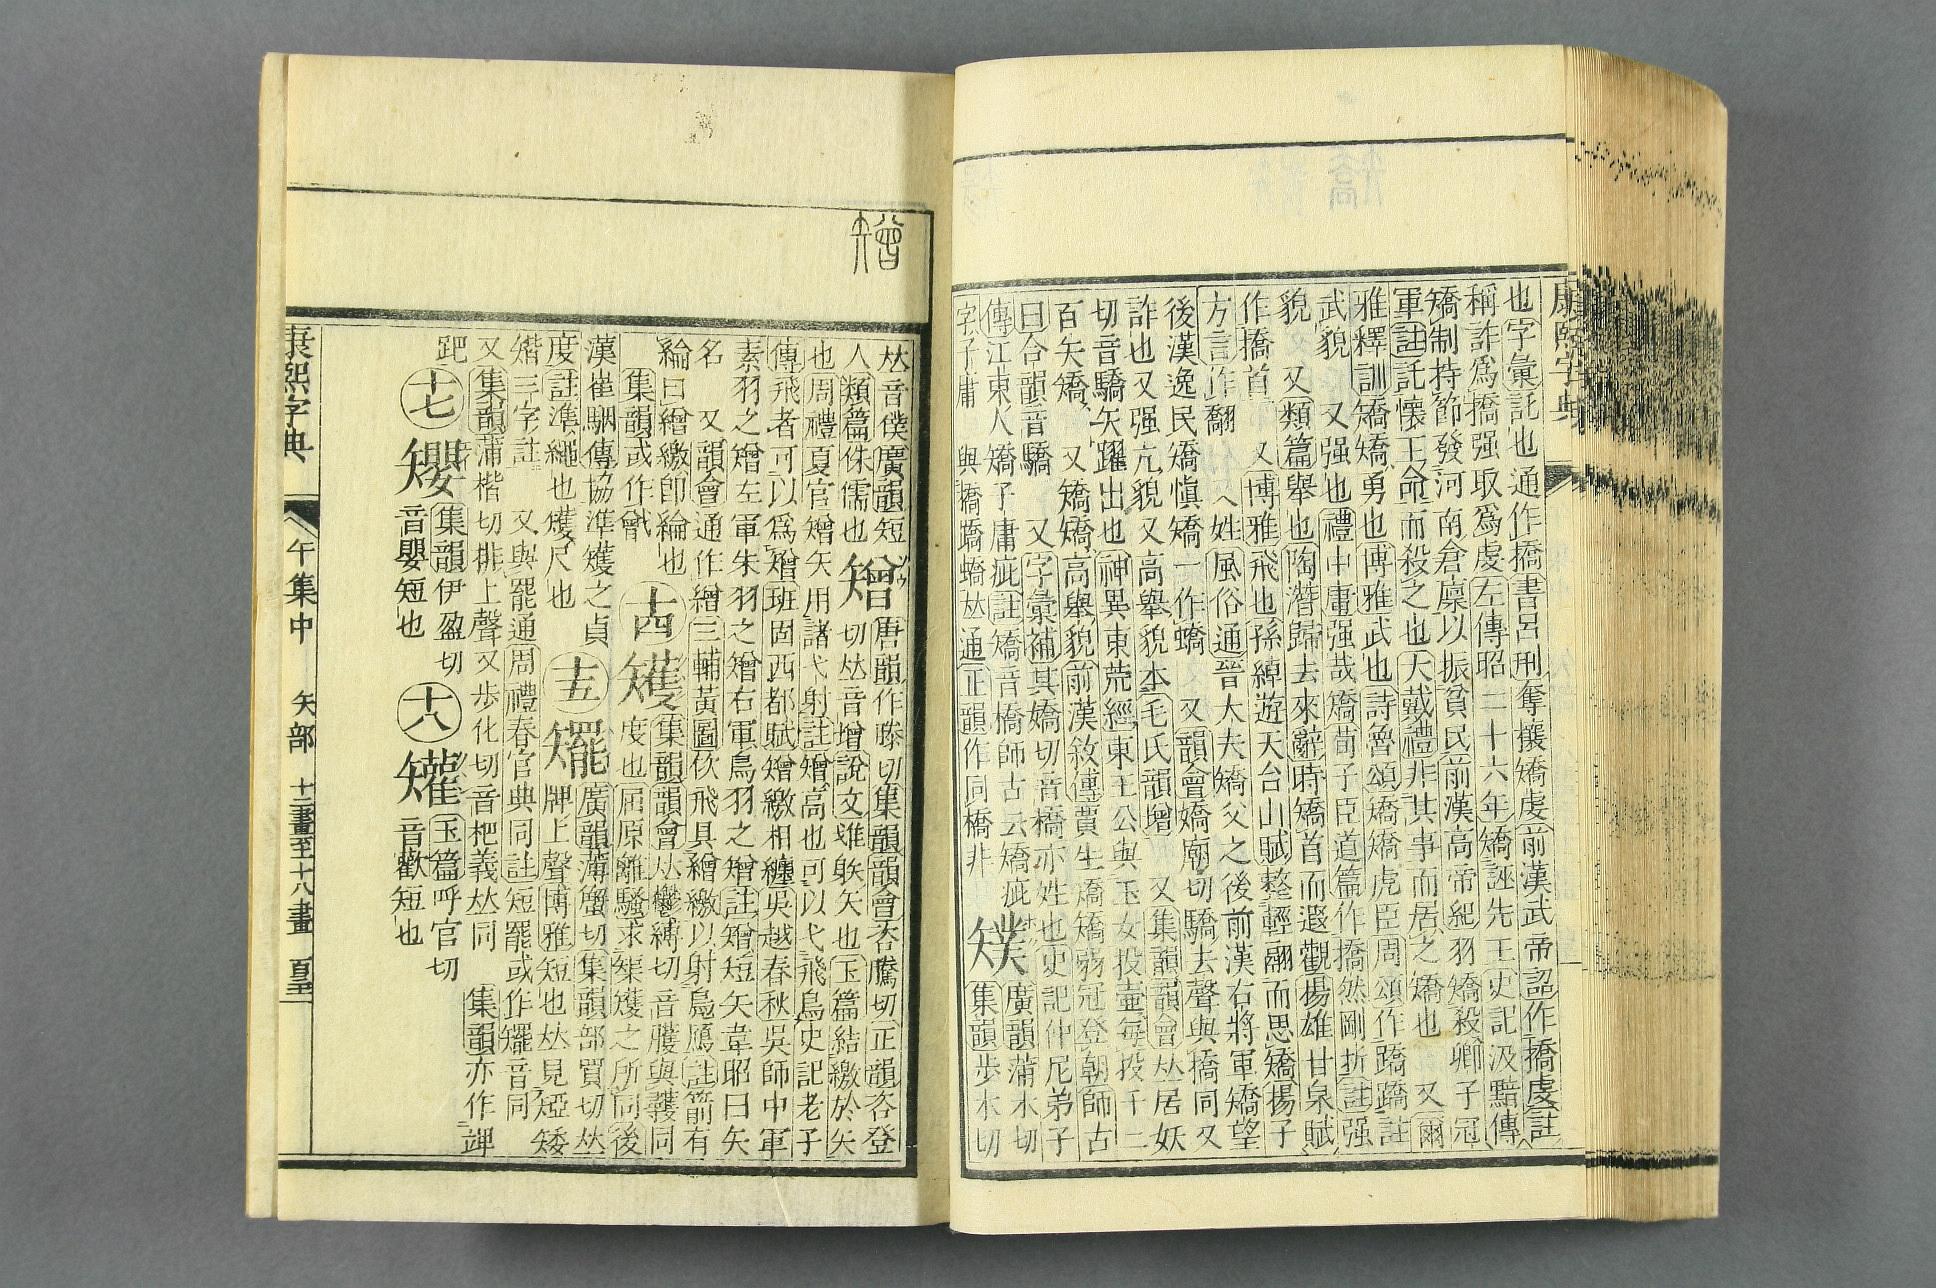 康熙字典
也字彙託也通作撟書呂刑奪攘矯虔前漢武帝詔作撟虔註
稱詐爲撟强取爲虔左傳昭二十六年矯誣先王史記汲黯傳
矯制持節發河南倉廩以振貧民前漢高帝紀羽矯殺卿子冠
軍註託懷王命而殺之也大戴禮非其事而居之矯也 又爾
雅釋訓矯矯勇也博雅武也詩魯頌矯矯虎臣周頌作蹻蹻註
武貌 又强也禮中庸强哉矯荀子臣道篇作撟然剛折註强
貌 又類篇舉也陶潛歸去來辭時矯首而遐觀楊雄甘泉賦
作撟首 又博雅飛也孫綽遊天台山賦整輕翮而思矯揚子
方言作翿 又姓風俗通晉大夫矯父之後前漢右將軍矯望
後漢逸民矯愼矯一作蟜 又韻會嬌廟切驕去聲與撟同又
詐也又强亢貌又高舉貌本毛氏韻增 又集韻韻會𠀤居妖
切音驕矢躍出也神異東荒經東王公與玉女投壷每投千二
百矢矯 又矯矯高舉貌前漢敘傳賈生矯矯弱冠登朝師古
曰合韻音驕 又字彙補其嬌切音橋亦姓也史記仲尼弟子
傳江東人矯子庸疵註矯音橋師古云矯疵
字子庸 與撟蹻蟜𠀤通正韻作同橋非
𥐁
廣韻蒲木切
集韻步木切
矰
𠀤音僕廣韻短
人類篇侏儒也
矰 唐韻作滕切集韻韻會咨騰切正韻咨登
切𠀤音增說文隿䠶矢也玉篇結繳於矢
也周禮夏官矰矢用諸弋射註矰高也可以弋飛鳥史記老子
傳飛者可以爲矰班固西都賦矰繳相纏吳越春秋吳師中軍
素羽之矰左軍朱羽之矰右軍鳥羽之矰註矰短矢韋昭曰矢
名 又韻會通作繒三輔黃圖佽飛具繒繳以射鳧鴈註箭有
綸曰繒繳卽綸也
集韻或作䎖
十四 矱 集韻韻會𠀤鬱縛切音臒與蒦同
度也屈原離騷求榘矱之所同後
漢崔駰傳協準矱之貞
度註準繩也矱尺也
十五 䂕 廣韻薄蟹切集韻部買切𠀤
牌上聲博雅短也𠀤見矲矮
㾨三字註 又與罷通周禮春官典同註短罷或作矲音同
又集韻蒲楷切排上聲又步化切音杷義𠀤同 集韻亦作䇑
跁
十七 𥐑 集韻伊盈切
音嬰短也
十八 𥐔 玉篇呼官切
音歡短也
康熙字典 午集中 矢部 十二畫至十八畫